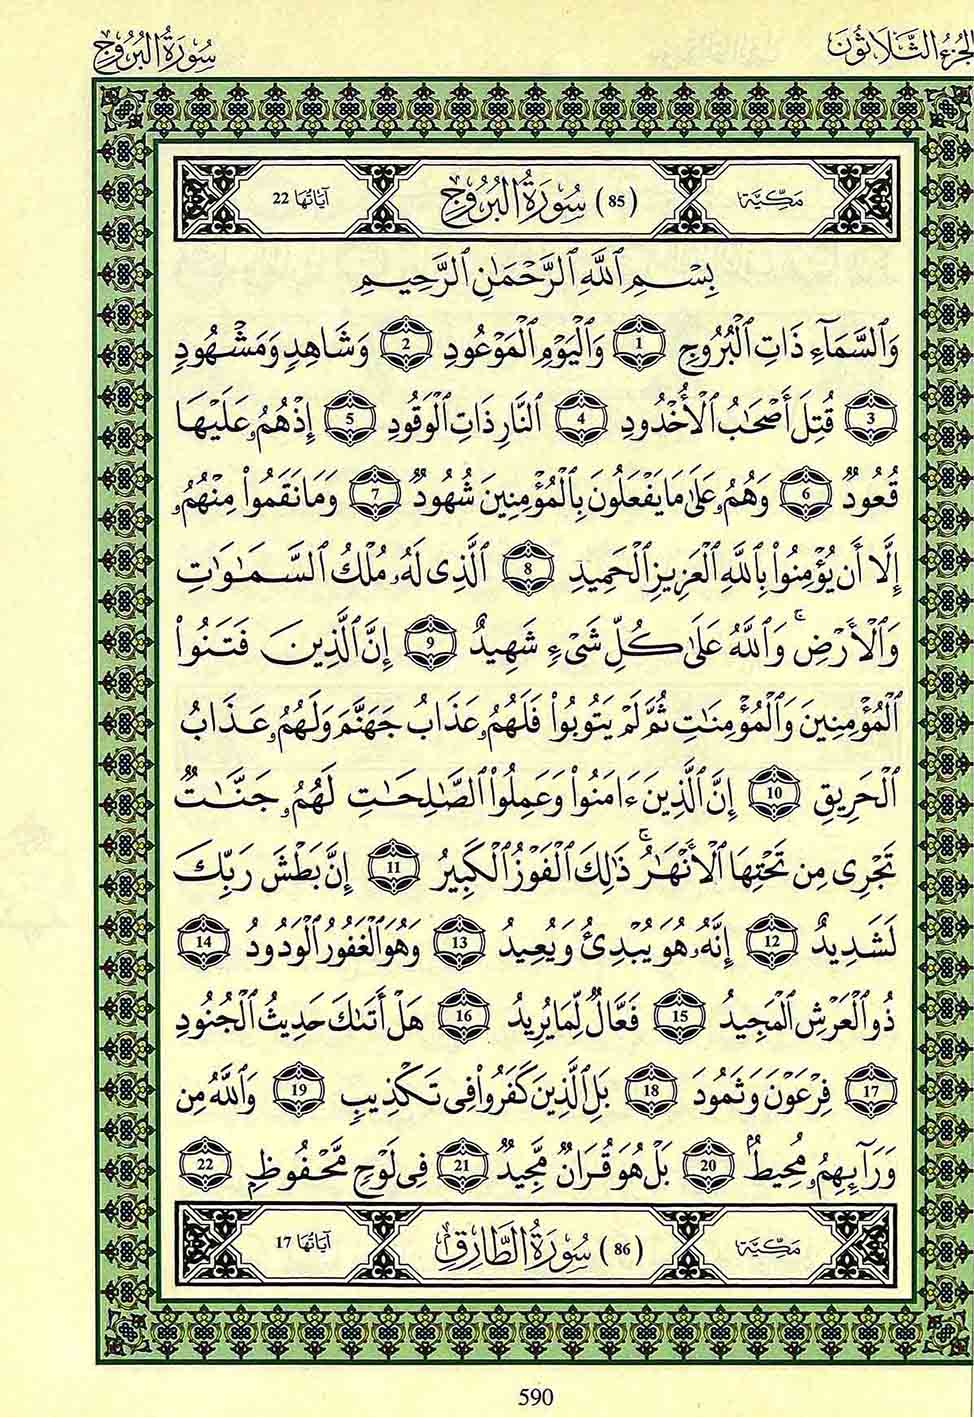 الجزء الثلاثون
سورة البروج
مكية (85) سُورَةُ البُرُوجِ آياتها 22
بِسْمِ اللَّهِ الرَّحْمَٰنِ الرَّحِيمِ
وَالسَّمَآءِ ذَاتِ الْبُرُوجِ 1 وَالْيَوْمِ الْمَوْعُودِ 2 وَشَاهِدٍ وَمَشْهُودٍ
3 قُتِلَ أَصْحَٰبُ الْأُخْدُودِ 4 النَّارِ ذَاتِ الْوَقُودِ 5 إِذْ هُمُۥ عَلَيْهَا
قُعُودٌ 6 وَهُمُۥ عَلَىٰ مَا يَفْعَلُونَ بِالْمُؤْمِنِينَ شُهُودٌ 7 وَمَا نَقَمُوا۟ مِنْهُمُۥ
إِلَّا أَن يُؤْمِنُوا۟ بِاللَّهِ الْعَزِيزِ الْحَمِيدِ 8 الَّذِى لَهُۥ مُلْكُ السَّمَٰوَٰتِ
وَالْأَرْضِ ۚ وَاللَّهُ عَلَىٰ كُلِّ شَىْءٍ شَهِيدٌ 9 إِنَّ الَّذِينَ فَتَنُوا۟
الْمُؤْمِنِينَ وَالْمُؤْمِنَٰتِ ثُمَّ لَمْ يَتُوبُوا۟ فَلَهُمُۥ عَذَابُ جَهَنَّمَ وَلَهُمُۥ عَذَابُ
الْحَرِيقِ 10 إِنَّ الَّذِينَ ءَامَنُوا۟ وَعَمِلُوا۟ الصَّٰلِحَٰتِ لَهُمُۥ جَنَّٰتٌ
تَجْرِى مِن تَحْتِهَا الْأَنْهَٰرُ ۚ ذَٰلِكَ الْفَوْزُ الْكَبِيرُ 11 إِنَّ بَطْشَ رَبِّكَ
لَشَدِيدٌ 12 إِنَّهُۥ هُوَ يُبْدِئُ وَيُعِيدُ 13 وَهُوَ الْغَفُورُ الْوَدُودُ 14
ذُو الْعَرْشِ الْمَجِيدُ 15 فَعَّالٌ لِّمَا يُرِيدُ 16 هَلْ أَتَىٰكَ حَدِيثُ الْجُنُودِ
17 فِرْعَوْنَ وَثَمُودَ 18 بَلِ الَّذِينَ كَفَرُوا۟ فِى تَكْذِيبٍ 19 وَاللَّهُ مِن
وَرَآئِهِمُۥ مُحِيطٌ 20 بَلْ هُوَ قُرَانٌ مَّجِيدٌ 21 فِى لَوْحٍ مَّحْفُوظٍ 22
مكية (86) سُورَةُ الطَّارِقِ آياتها 17
590